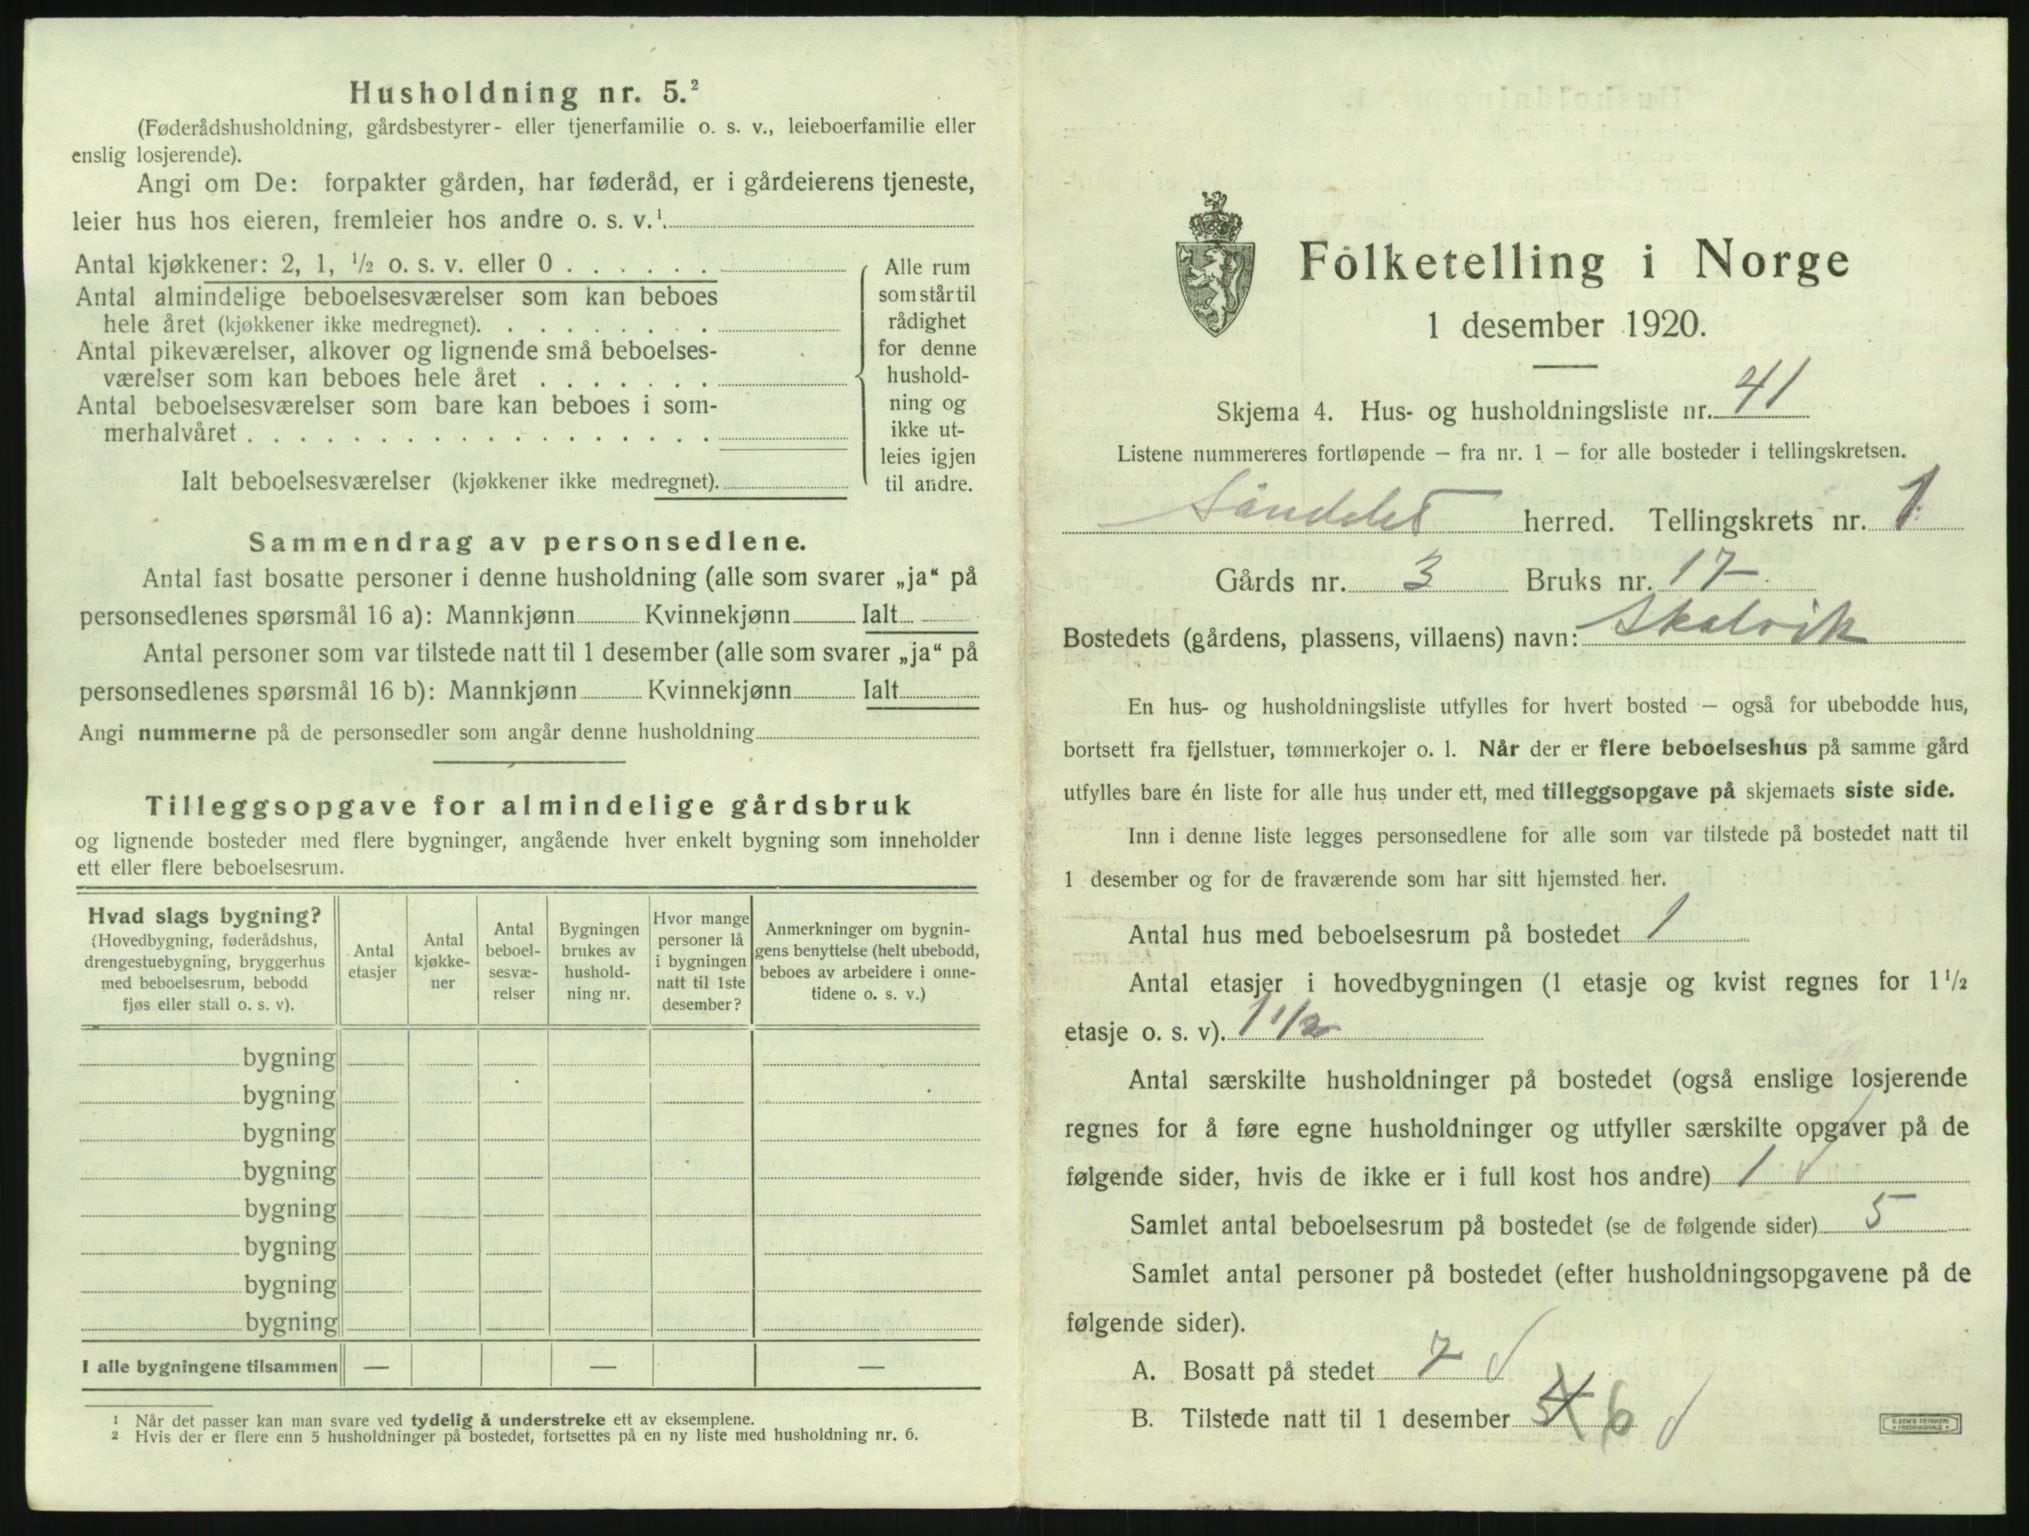 Husholdning nr. 5.²
(Føderådshusholdning, gårdsbestyrer- eller tjenerfamilie o. s. v., leieboerfamilie eller
enslig losjerende).
Angi om De: forpakter gården, har føderåd, er i gårdeierens tjeneste,
leier hus hos eieren, fremleier hos andre o. s. v.¹
Antal kjøkkener: 2, 1, ½ o. s. v. eller 0
Antal almindelige beboelsesværelser som kan beboes
hele året (kjøkkener ikke medregnet).
Antal pikeværelser, alkover og lignende små beboelses-
værelser som kan beboes hele året
Antal beboelsesværelser som bare kan beboes i som-
merhalvåret
Ialt beboelsesværelser (kjøkkener ikke medregnet).
Alle rum
som står til
rådighet
for denne
hushold-
ning og
ikke ut-
leies igjen
til andre.
Sammendrag av personsedlene.
Antal fast bosatte personer i denne husholdning (alle som svarer „ja“ på
personsedlenes spørsmål 16 a): Mannkjønn Kvinnekjønn Ialt
Antal personer som var tilstede natt til 1 desember (alle som svarer „ja“ på
personsedlenes spørsmål 16 b): Mannkjønn Kvinnekjønn Ialt
Angi nummerne på de personsedler som angår denne husholdning
Tilleggsopgave for almindelige gårdsbruk
og lignende bosteder med flere bygninger, angående hver enkelt bygning som inneholder
ett eller flere beboelsesrum.
Hvad slags bygning?
(Hovedbygning, føderådshus,
drengestuebygning, bryggerhus
med beboelsesrum, bebodd
fjøs eller stall o. s. v).
Antal
etasjer
Antal
kjøkke-
ner
Antal
beboel-
sesvæ-
relser
Bygningen
brukes av
hushold-
ning nr.
Hvor mange
personer lå
i bygningen
natt til 1ste
desember?
Anmerkninger om bygnin-
gens benyttelse (helt ubebodd,
beboes av arbeidere i onne-
tidene o. s. v.)
bygning
bygning
bygning
bygning
bygning
bygning
bygning
bygning
I alle bygningene tilsammen — — —
¹ Når det passer kan man svare ved tydelig å understreke ett av eksemplene.
² Hvis der er flere enn 5 husholdninger på bostedet, fortsettes på en ny liste med husholdning nr. 6.
Folketelling i Norge
1 desember 1920.
Skjema 4. Hus- og husholdningsliste nr. 41
Listene nummereres fortløpende – fra nr. 1 – for alle bosteder i tellingskretsen.
Søndeled herred. Tellingskrets nr. 1
Gårds nr. 3 Bruks nr. 17
Bostedets (gårdens, plassens, villaens) navn: Skalvik
En hus- og husholdningsliste utfylles for hvert bosted – også for ubebodde hus,
bortsett fra fjellstuer, tømmerkojer o. l. Når der er flere beboelseshus på samme gård
utfylles bare én liste for alle hus under ett, med tilleggsopgave på skjemaets siste side.
Inn i denne liste legges personsedlene for alle som var tilstede på bostedet natt til
1 desember og for de fraværende som har sitt hjemsted her.
Antal hus med beboelsesrum på bostedet 1
Antal etasjer i hovedbygningen (1 etasje og kvist regnes for 1½
etasje o. s. v). 1 1/2
Antal særskilte husholdninger på bostedet (også enslige losjerende
regnes for å føre egne husholdninger og utfyller særskilte opgaver på de
følgende sider, hvis de ikke er i full kost hos andre) 1 √
Samlet antal beboelsesrum på bostedet (se de følgende sider) 5
Samlet antal personer på bostedet (efter husholdningsopgavene på de
følgende sider).
A. Bosatt på stedet 7 √
B. Tilstede natt til 1 desember 6 √